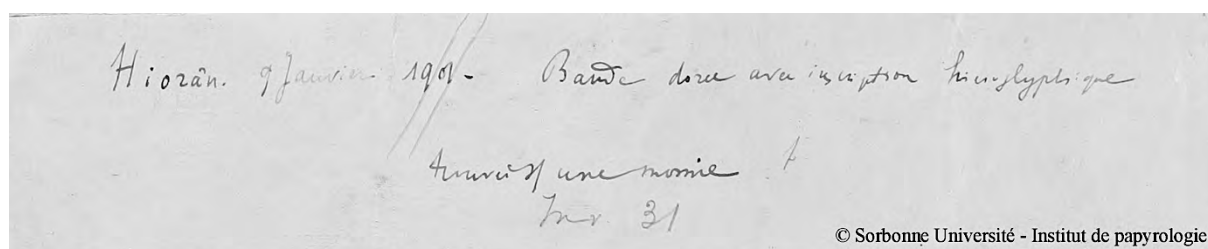 Hiorân. 9 Janvier 1901 - Bande dorée avec inscription hiéroglyphique
trouvée s/ une momie
Inv. 31
© Sorbonne Université - Institut de papyrologie